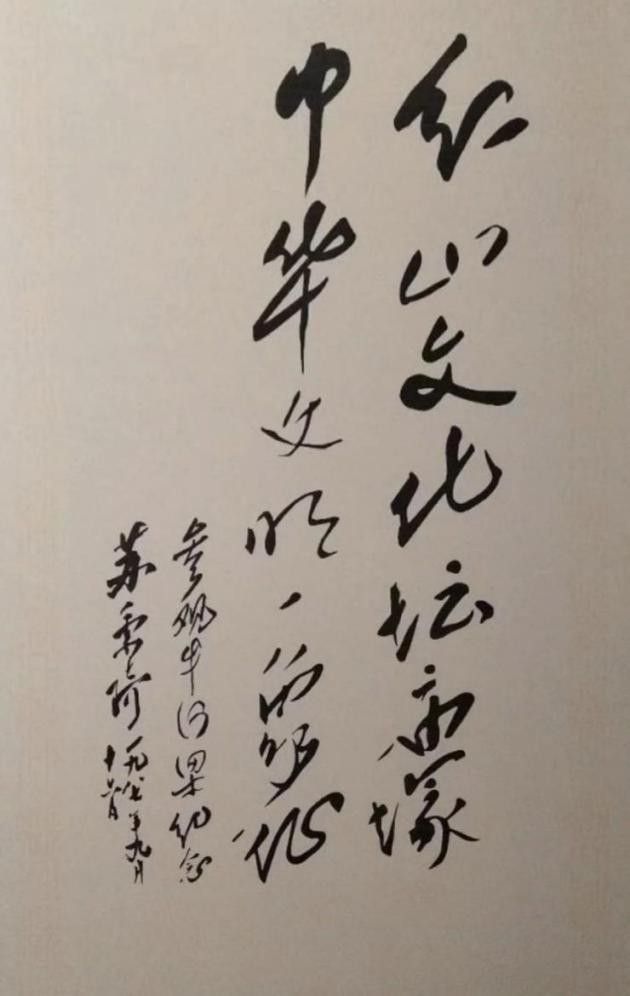 红山文化坛庙塚
中华文明一象征
参观牛河梁纪念
苏秉琦 一九八七年九月
十六日